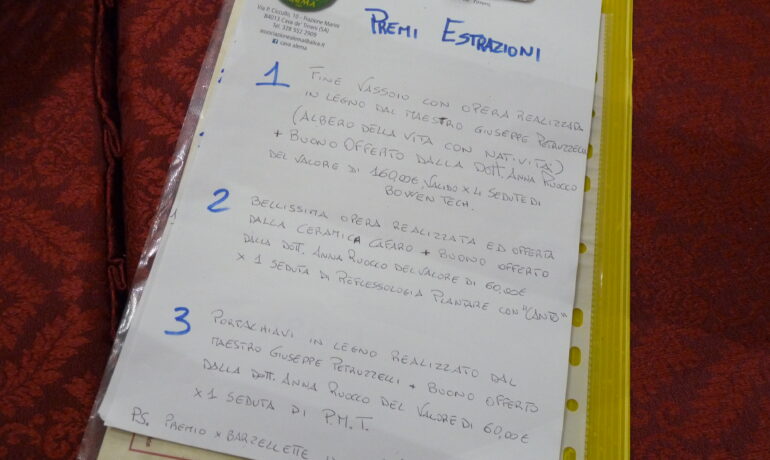 Via P. Ciccullo, 10 - Frazione Marini
84013 Cava de' Tirreni (SA)
Tel. 328 957 2909
cava.alema
PREMI ESTRAZIONI
1 FINE VASSOIO CON OPERA REALIZZATA
IN LEGNO DAL MAESTRO GIUSEPPE PETRUZZELLI
(ALBERO DELLA VITA CON NATIVITÀ)
+ BUONO OFFERTO DALLA DOTT. ANNA RUOCCO
DEL VALORE DI 160,00€, VALIDO X 4 SEDUTE DI
BOWEN TECH.
2 BELLISSIMA OPERA REALIZZATA ED OFFERTA
DALLA CERAMICA CAFARO + BUONO OFFERTO
DALLA DOTT. ANNA RUOCCO DEL VALORE DI 60,00€
X 1 SEDUTA DI REFLESSOLOGIA PLANTARE CON "CANTO"
3 PORTACHIAVI IN LEGNO REALIZZATO DAL
MAESTRO GIUSEPPE PETRUZZELLI + BUONO OFFERTO
DALLA DOTT. ANNA RUOCCO DEL VALORE DI 60,00€
X 1 SEDUTA DI P.M.T.
P.S. PREMIO X BARZELLETTE